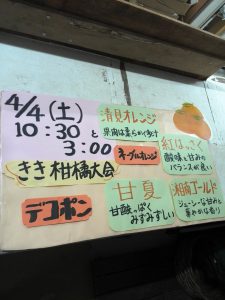 4/4(土)
10:30と
3:00
きき柑橘大会
デコポン
清見オレンジ
果肉は柔らかく多汁
ネーブルオレンジ
甘夏
甘酸っぱく
みずみずしい
紅はっさく
酸味と甘みの
バランスが良い
湘南ゴールド
ジューシーな甘みと
華やかな香り